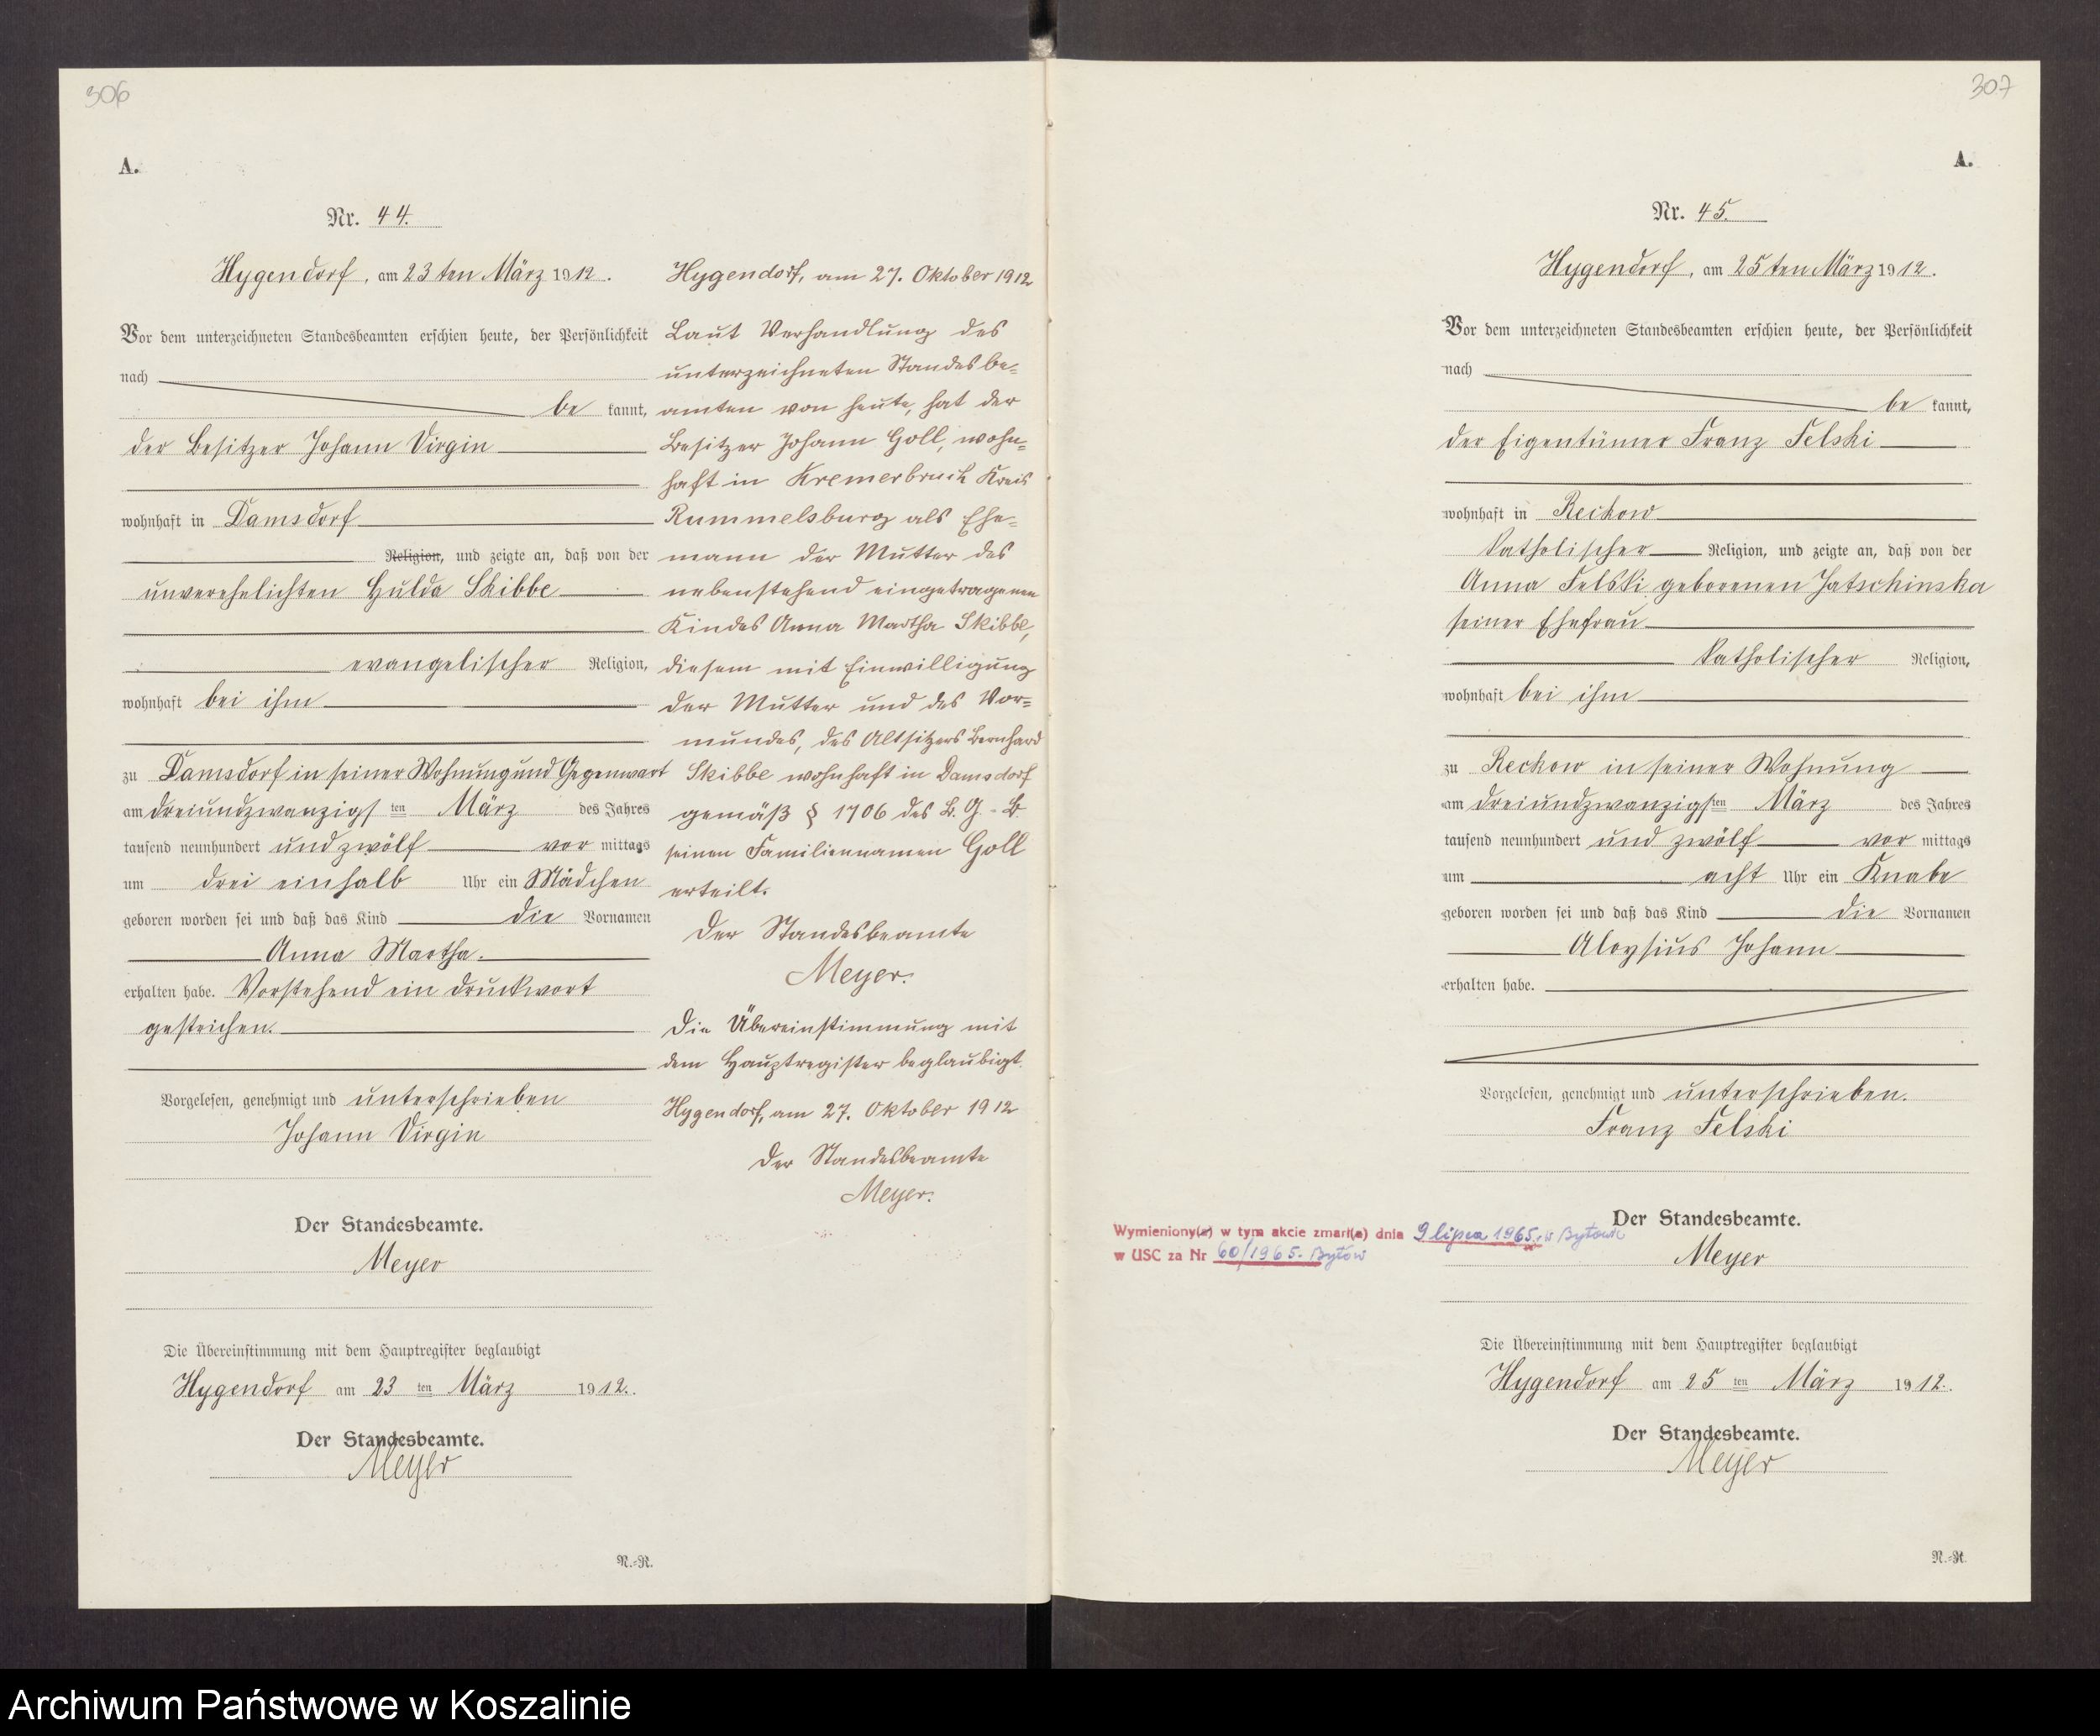 306
A.
Nr. 44.
Hygendorf, am 23ten März 1912.
Vor dem unterzeichneten Standesbeamten erschien heute, der Persönlichkeit
nach
be kannt,
der Besitzer Johann Virgin
wohnhaft in Damsdorf
Religion, und zeigte an, daß von der
unverehelichten Hulda Skibbe
evangelischer Religion,
wohnhaft bei ihm
zu Damsdorf in seiner Wohnung und Gegenwart
am dreiundzwanzigsten März des Jahres
tausend neunhundert und zwölf vor mittags
um drei einhalb Uhr ein Mädchen
geboren worden sei und daß das Kind die Vornamen
Anna Martha.
erhalten habe. Vorstehend ein Druckwort
gestrichen.
Vorgelesen, genehmigt und unterschrieben
Johann Virgin
Der Standesbeamte.
Meyer
Die Übereinstimmung mit dem Hauptregister beglaubigt
Hygendorf am 23 ten März 1912.
Der Standesbeamte.
Meyer
N.-R.
Hygendorf, am 27. Oktober 1912
Laut Verhandlung des
unterzeichneten Standesbe=
amten von heute, hat der
Besitzer Johann Goll, wohn=
haft in Kremerbruch Kreis
Rummelsburg als Ehe=
mann der Mutter des
nebenstehend eingetragenen
Kindes Anna Martha Skibbe,
diesem mit Einwilligung
der Mutter und des Vor=
mundes, des Altsitzers Bernhard
Skibbe wohnhaft in Damsdorf
gemäß § 1706 des B. G.-B.
seinen Familiennamen Goll
erteilt.
Der Standesbeamte
Meyer.
Die Übereinstimmung mit
dem Hauptregister beglaubigt.
Hygendorf, am 27. Oktober 1912
Der Standesbeamte
Meyer.
307
A.
Nr. 45.
Hygendorf, am 25ten März 1912.
Vor dem unterzeichneten Standesbeamten erschien heute, der Persönlichkeit
nach
be kannt,
der Eigentümer Franz Felski
wohnhaft in Reckow
katholischer Religion, und zeigte an, daß von der
Anna Felski geborenen Jatschinska
seiner Ehefrau
katholischer Religion,
wohnhaft bei ihm
zu Reckow in seiner Wohnung
am dreiundzwanzigsten März des Jahres
tausend neunhundert und zwölf vor mittags
um acht Uhr ein Knabe
geboren worden sei und daß das Kind die Vornamen
Aloysius Johann
erhalten habe.
Vorgelesen, genehmigt und unterschrieben.
Franz Felski
Der Standesbeamte.
Meyer
Wymieniony(a) w tym akcie zmarł(a) dnia 9 lipca 1965. w Bytowie
w USC za Nr 60/1965. Bytów
Die Übereinstimmung mit dem Hauptregister beglaubigt
Hygendorf am 25 ten März 1912.
Der Standesbeamte.
Meyer
N.-R.
Archiwum Państwowe w Koszalinie